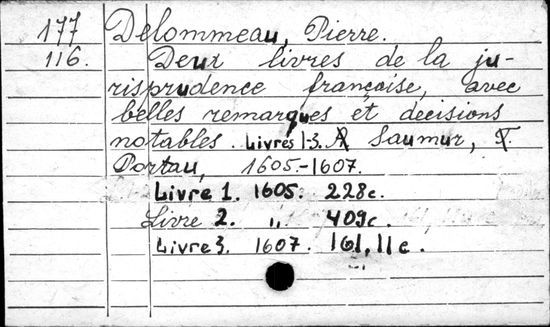 177 Delommeau, Pierre.
116. Deux livres de la ju-
risprudence françoise, avec
belles remarques et decisions
notables. Livres 1-3. A Saumur, T.
Portau, 1605.-1607.
Livre 1. 1605. 228c.
Livre 2. „ 409c.
Livre 3. 1607. 161, 11 c.